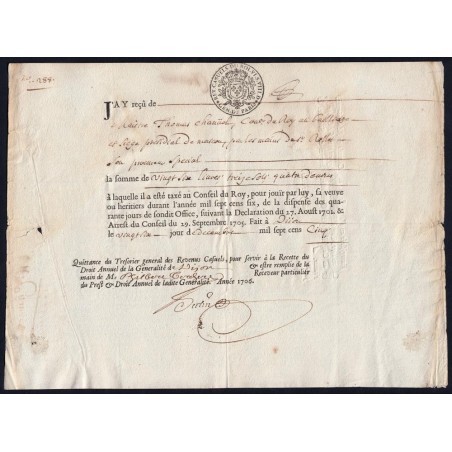 J'AY reçu de
Maistre Thomas Chanuel, Conr. du Roy au Bailliage
et siege presidial de mascon, par les mains de
son procureur special
la somme de vingt six livres treize sols quatre deniers
à laquelle il a esté taxé au Conseil du Roy, pour jouir par luy, sa veuve
ou heritiers durant l'année mil sept cens six, de la dispense des qua-
rante jours de sondit Office, suivant la Declaration du 17. Aoust 1701. &
Arrest du Conseil du 29. Septembre 1705. Fait à Dijon
le vingtiesme jour de decembre mil sept cens Cinq
Quittance du Tresorier general des Revenus Casuels, pour servir à la Recette du
Droit Annuel de la Generalité de Dijon & estre remplie de la
main de Me Receveur particulier
du Prest & Droit Annuel de ladite Generalité. Année 1706.
Bertin